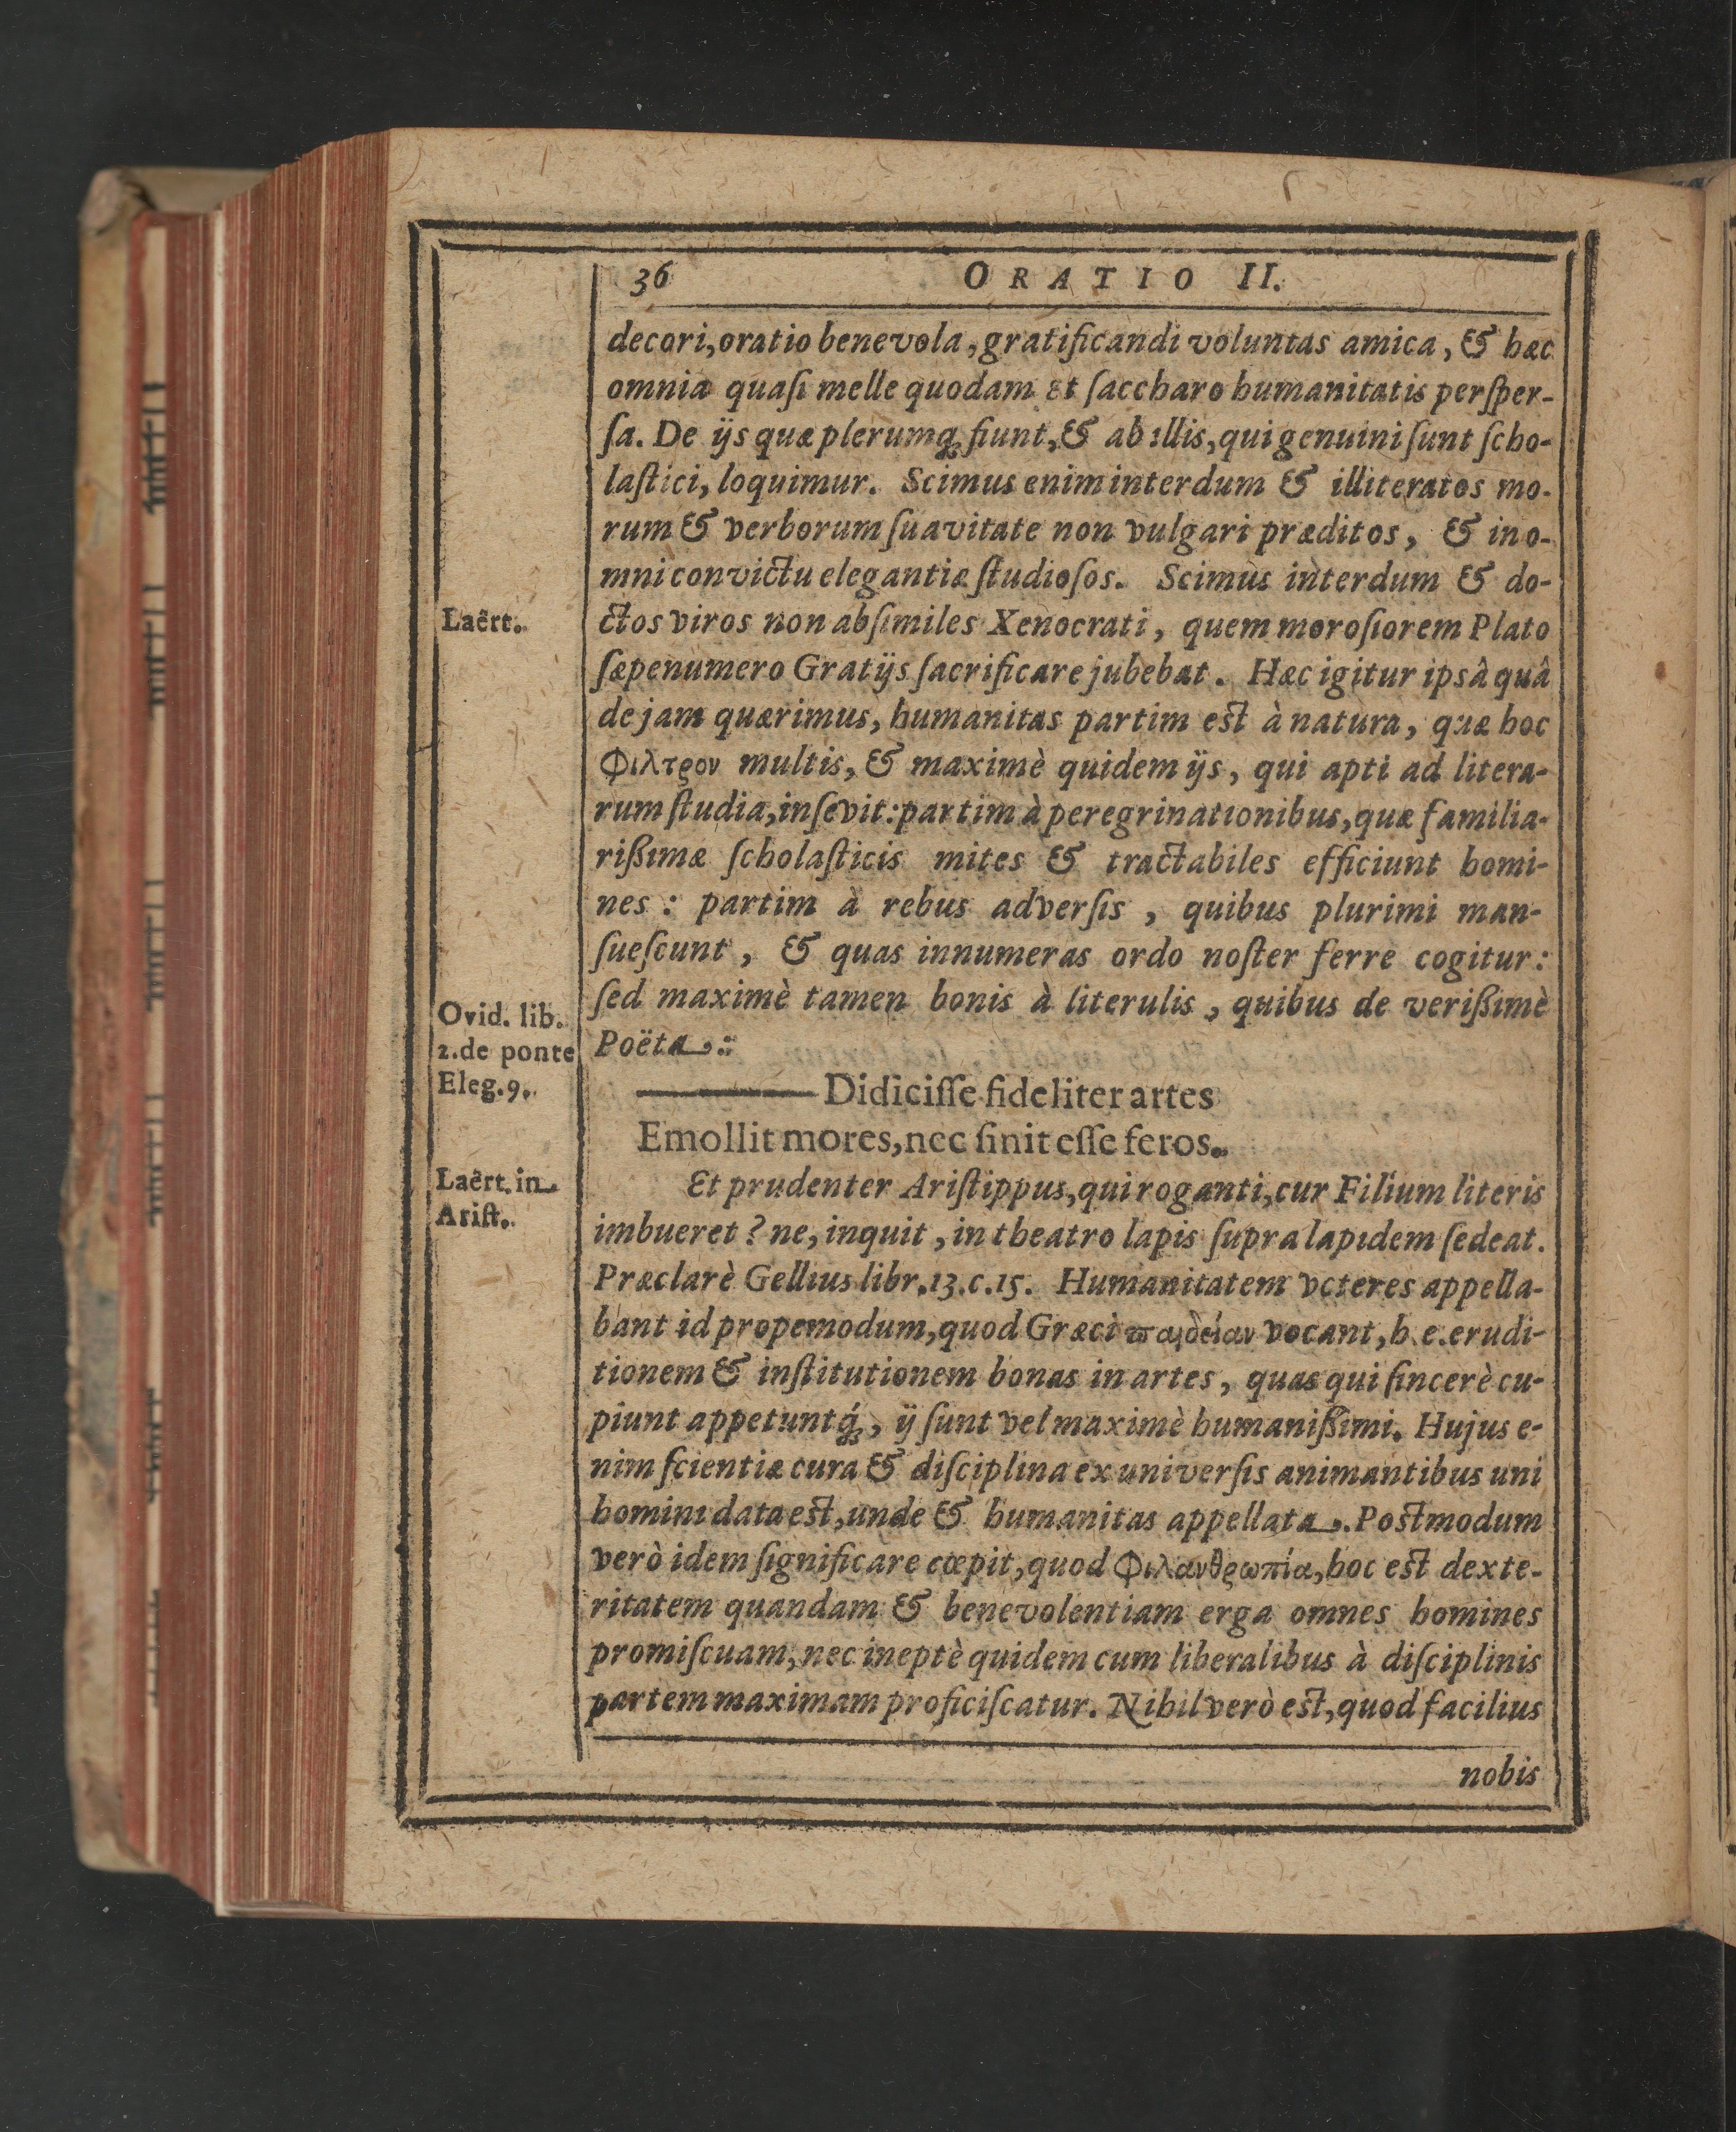 36 ORATIO II.
decori, oratio benevola, gratificandi voluntas amica, & hæc
omnia quaſi melle quodam et ſaccharo humanitatis perſper-
ſa. De ijs quæ plerumq; fiunt, & ab illis, qui genuini ſunt ſcho-
laſtici, loquimur. Scimus enim interdum & illiteratos mo-
rum & verborum ſuavitate non vulgari præditos, & in o-
mni convictu elegantiæ ſtudioſos. Scimus interdum & do-
Laërt.
ctos viros non abſimiles Xenocrati, quem moroſiorem Plato
ſæpenumero Gratijs ſacrificare jubebat. Hæc igitur ipsâ quâ
de jam quærimus, humanitas partim eſt à natura, quæ hoc
φιλτρον multis, & maximè quidem ijs, qui apti ad litera-
rum ſtudia, inſevit: partim à peregrinationibus, quæ familia-
rißimæ ſcholaſticis mites & tractabiles efficiunt homi-
nes: partim à rebus adverſis, quibus plurimi man-
ſueſcunt, & quas innumeras ordo noſter ferre cogitur:
ſed maximè tamen bonis à literulis, quibus de verißimè
Ovid. lib.
2. de ponte
Eleg. 9.
Poëta:
——— Didiciſſe fideliter artes
Emollit mores, nec ſinit eſſe feros.
Laërt. in
Ariſt.
Et prudenter Ariſtippus, qui roganti, cur Filium literis
imbueret? ne, inquit, in theatro lapis ſupra lapidem ſedeat.
Præclarè Gellius libr. 13. c. 15. Humanitatem veteres appella-
bant id propemodum, quod Græci παιδείαν vocant, h. e. erudi-
tionem & inſtitutionem bonas in artes, quas qui ſincerè cu-
piunt appetuntq́;, ij ſunt vel maximè humanißimi. Hujus e-
nim ſcientiæ cura & diſciplina ex univerſis animantibus uni
homini data eſt, unde & humanitas appellata. Poſtmodum
verò idem ſignificare cœpit, quod φιλανθρωπία, hoc eſt dexte-
ritatem quandam & benevolentiam erga omnes homines
promiſcuam, nec ineptè quidem cum liberalibus à diſciplinis
partem maximam proficiſcatur. Nihil verò eſt, quod facilius
nobis